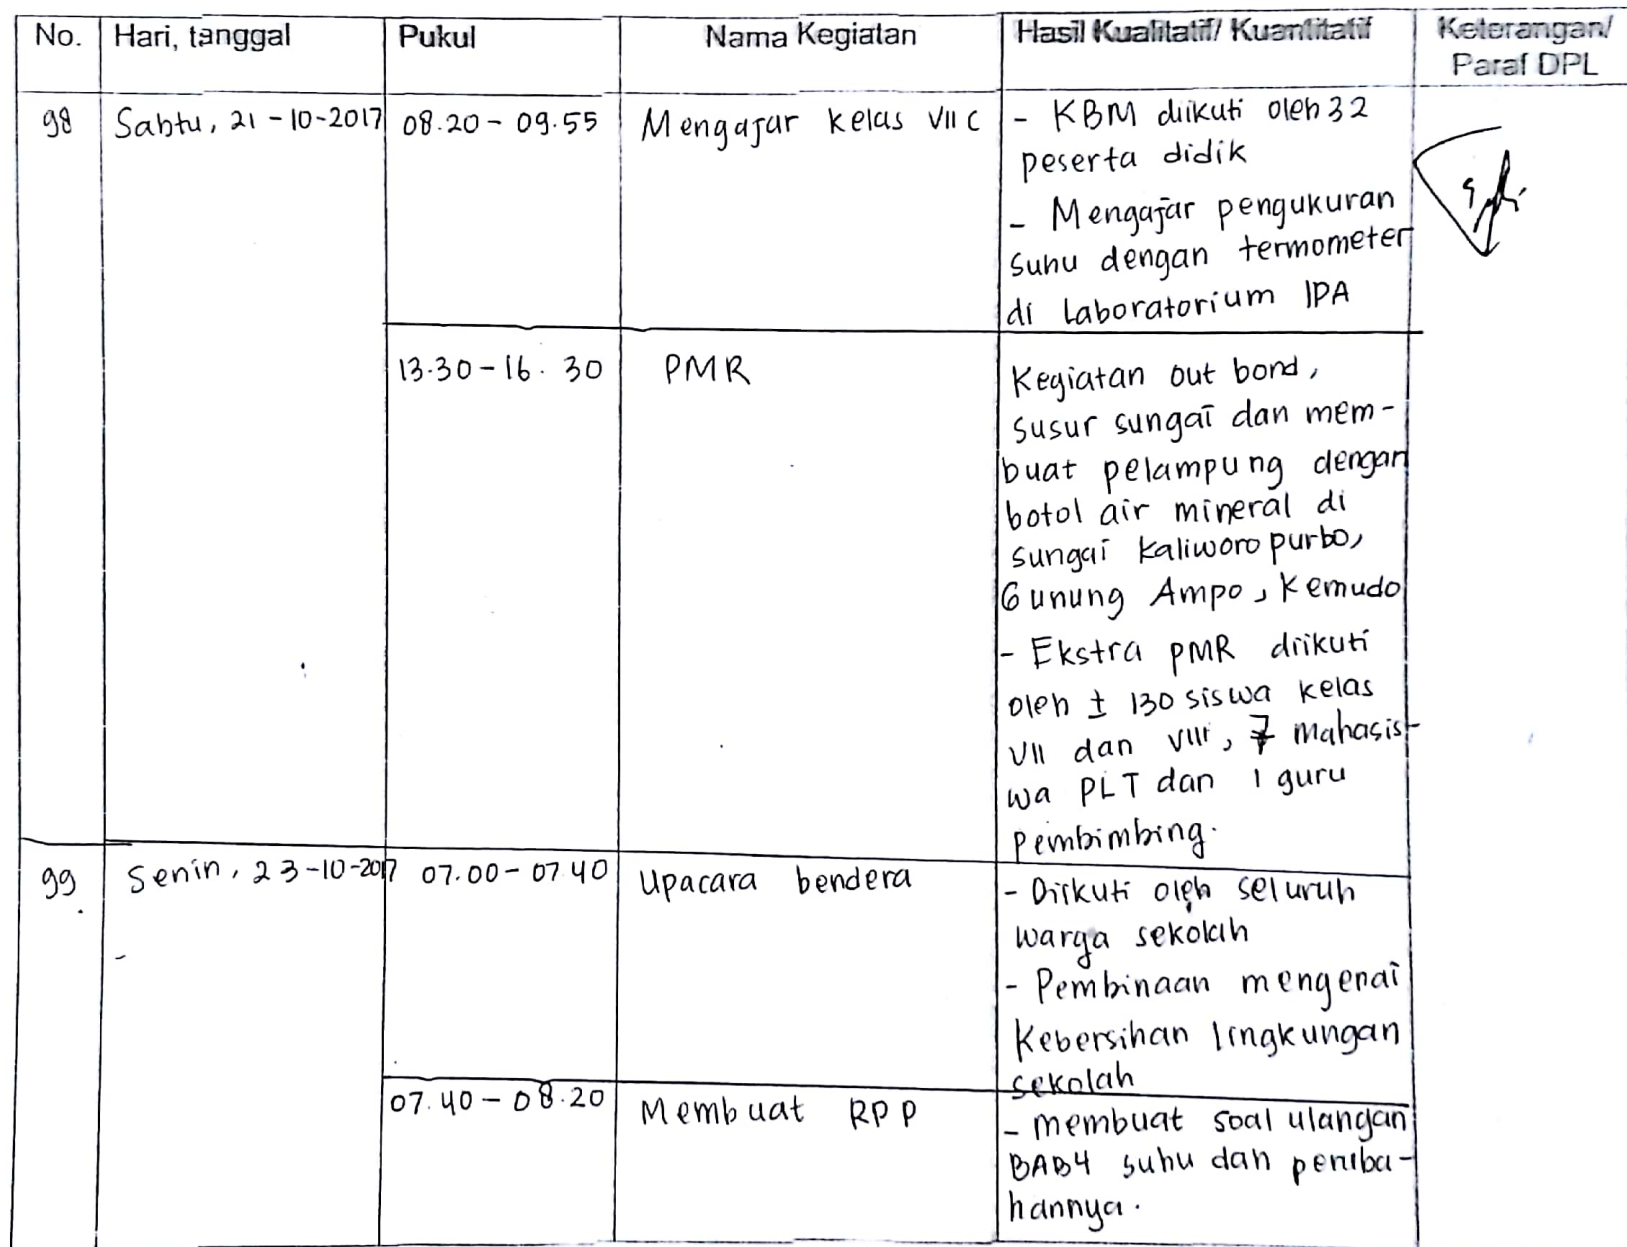 No. Hari, tanggal Pukul Nama Kegiatan Hasil Kualitatif/ Kuantitatif Keterangan/
Paraf DPL
98 Sabtu, 21-10-2017 08.20 - 09.55 Mengajar kelas VII C - KBM diikuti oleh 32
peserta didik
- Mengajar pengukuran
suhu dengan termometer
di Laboratorium IPA
13.30 - 16.30 PMR Kegiatan out bond,
susur sungai dan mem-
buat pelampung dengan
botol air mineral di
sungai Kaliworo purbo,
Gunung Ampo, Kemudo
- Ekstra PMR diikuti
oleh ± 130 siswa kelas
VII dan VIII, 7 mahasis-
wa PLT dan 1 guru
Pembimbing.
99 Senin, 23-10-2017 07.00 - 07.40 Upacara bendera - Diikuti oleh seluruh
warga sekolah
- Pembinaan mengenai
Kebersihan lingkungan
sekolah
07.40 - 08.20 Membuat RPP - membuat soal ulangan
BAB 4 suhu dan peruba-
hannya.